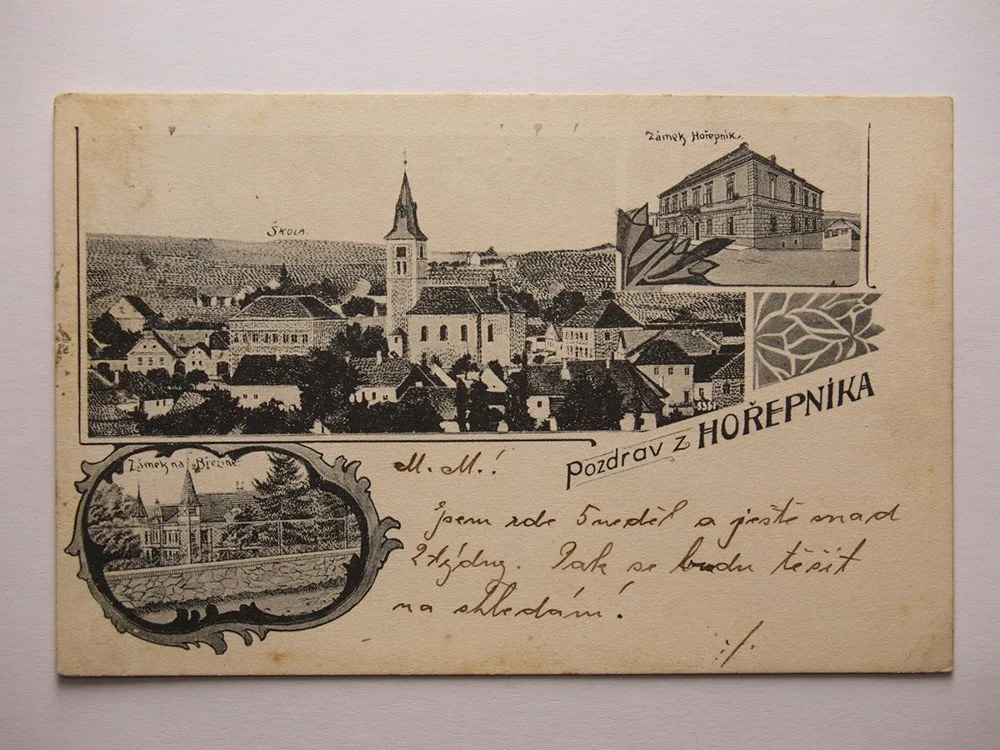 Zámek Hořepnik.
ŠKOLA.
Pozdrav z HOŘEPNÍKA
Zámek na Březině.
M. M.!
Jsem zde 5 neděl a ještě snad
2 týdny. Pak se budu těšit
na shledání!